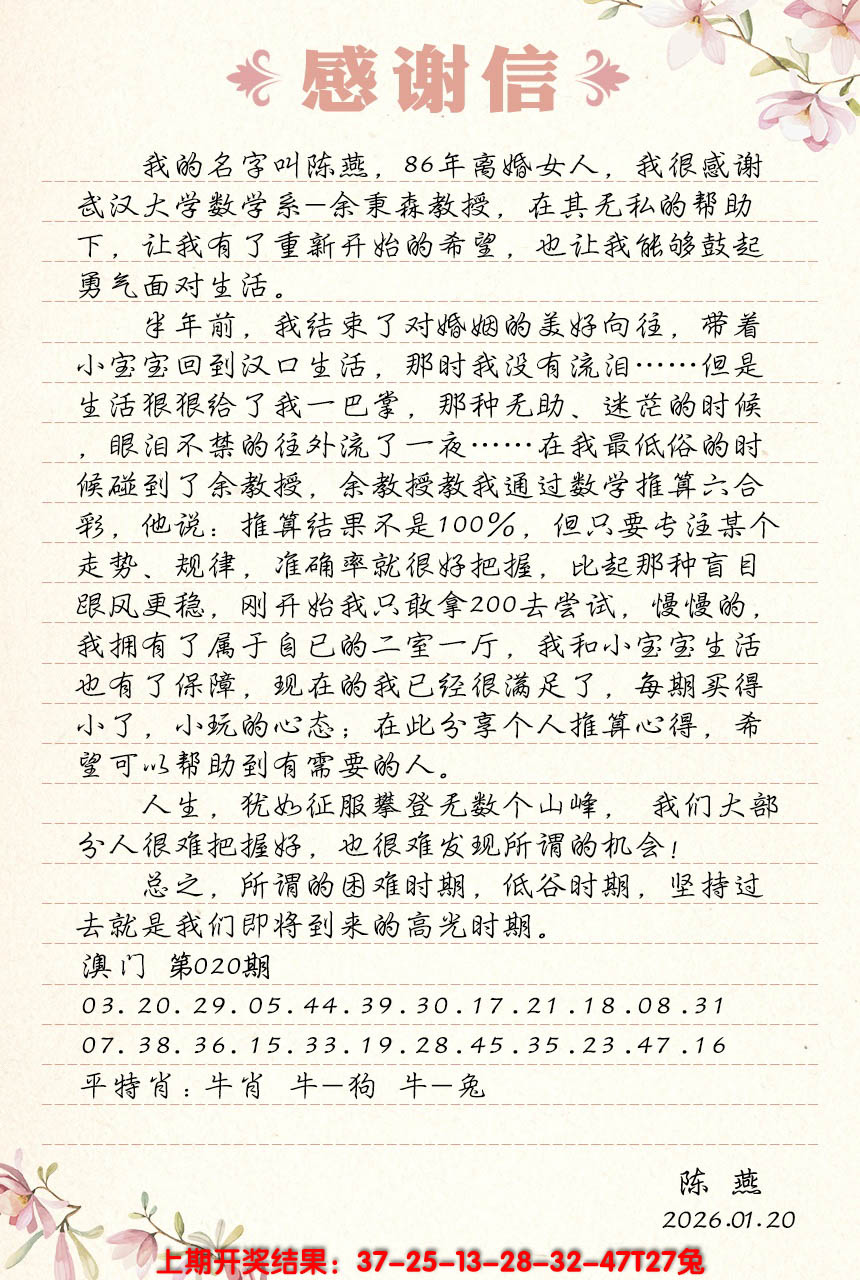 感谢信
我的名字叫陈燕，86年离婚女人，我很感谢
武汉大学数学系—余秉森教授，在其无私的帮助
下，让我有了重新开始的希望，也让我能够鼓起
勇气面对生活。
半年前，我结束了对婚姻的美好向往，带着
小宝宝回到汉口生活，那时我没有流泪……但是
生活狠狠给了我一巴掌，那种无助、迷茫的时候
，眼泪不禁的往外流了一夜……在我最低俗的时
候碰到了余教授，余教授教我通过数学推算六合
彩，他说：推算结果不是100%，但只要专注某个
走势、规律，准确率就很好把握，比起那种盲目
跟风更稳，刚开始我只敢拿200去尝试，慢慢的，
我拥有了属于自已的二室一厅，我和小宝宝生活
也有了保障，现在的我已经很满足了，每期买得
小了，小玩的心态；在此分享个人推算心得，希
望可以帮助到有需要的人。
人生，犹如征服攀登无数个山峰， 我们大部
分人很难把握好，也很难发现所谓的机会！
总之，所谓的困难时期，低谷时期，坚持过
去就是我们即将到来的高光时期。
澳门 第020期
03.20.29.05.44.39.30.17.21.18.08.31
07.38.36.15.33.19.28.45.35.23.47.16
平特肖：牛肖 牛—狗 牛—兔
陈 燕
2026.01.20
上期开奖结果：37-25-13-28-32-47T27兔